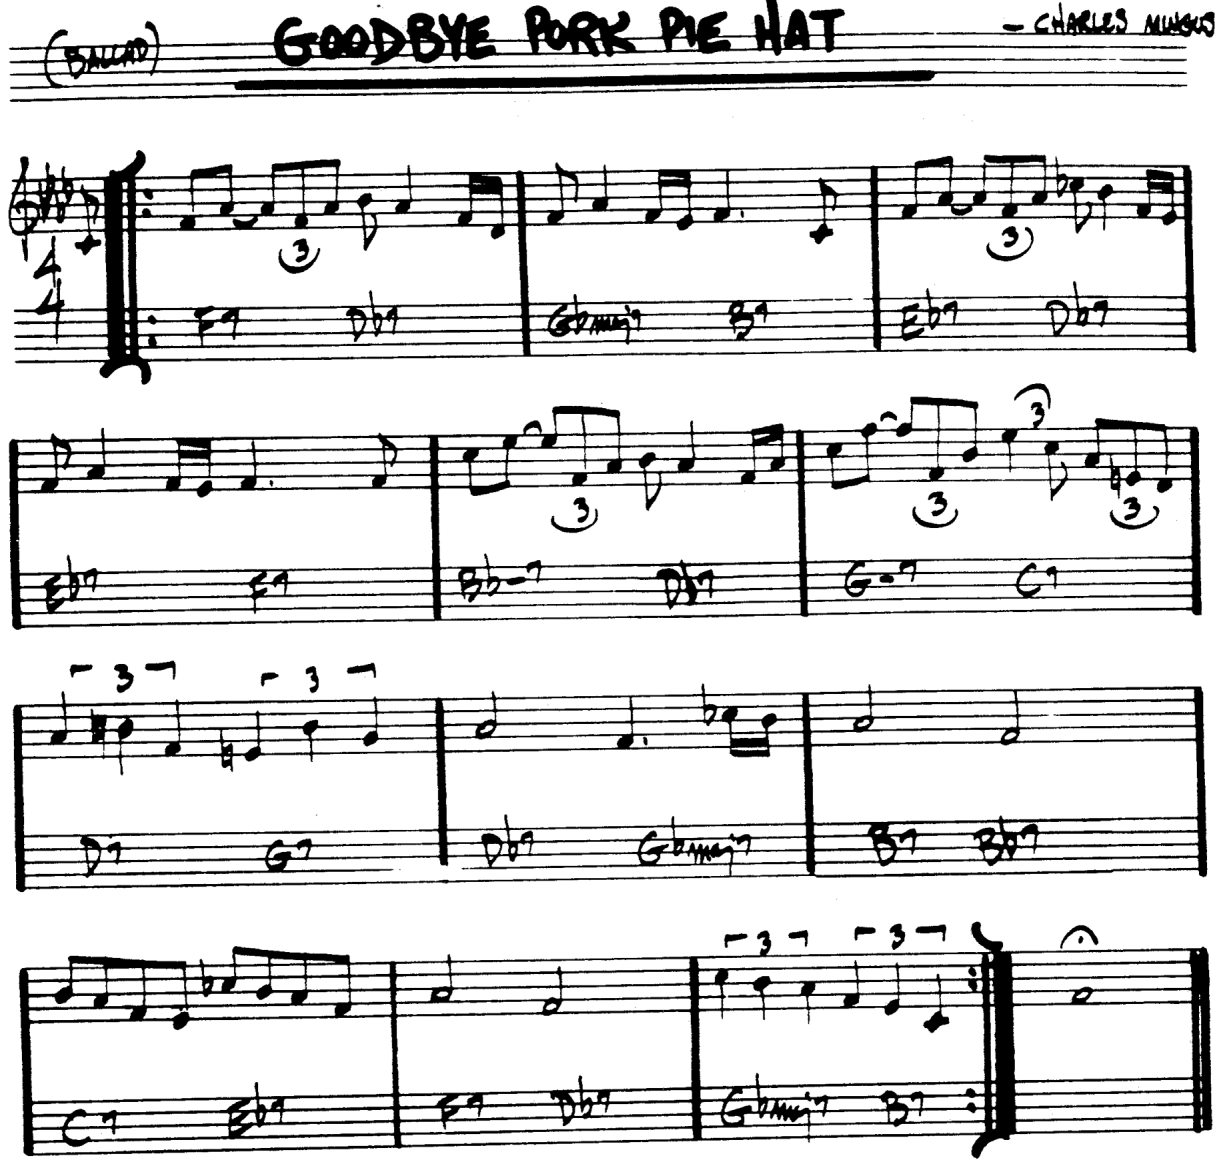 (BALLAD) GOODBYE PORK PIE HAT - CHARLES MINGUS
3 3
4
4
F7 Db7 Gbmaj7 B7 Eb7 Db7
3
3 3 3
Eb7 F7 Bb-7 Db7 G-7 C7
3 3
D7 G7 Db7 Gbmaj7 B7 Bb7
3 3
C7 Eb7 F7 Db7 Gbmaj7 B7